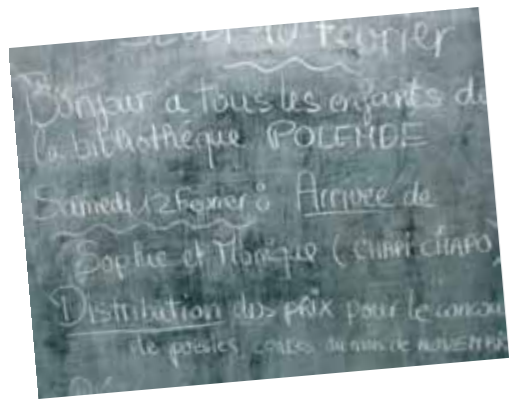 Jeudi 10 février
Bonjour à tous les enfants de
la bibliothèque POLENDE
Samedi 12 Février : Arrivée de
Sophie et Monique (CHAPI CHAPO)
Distribution des prix pour le concou
de poésies, contes du mois de NOVEMBR